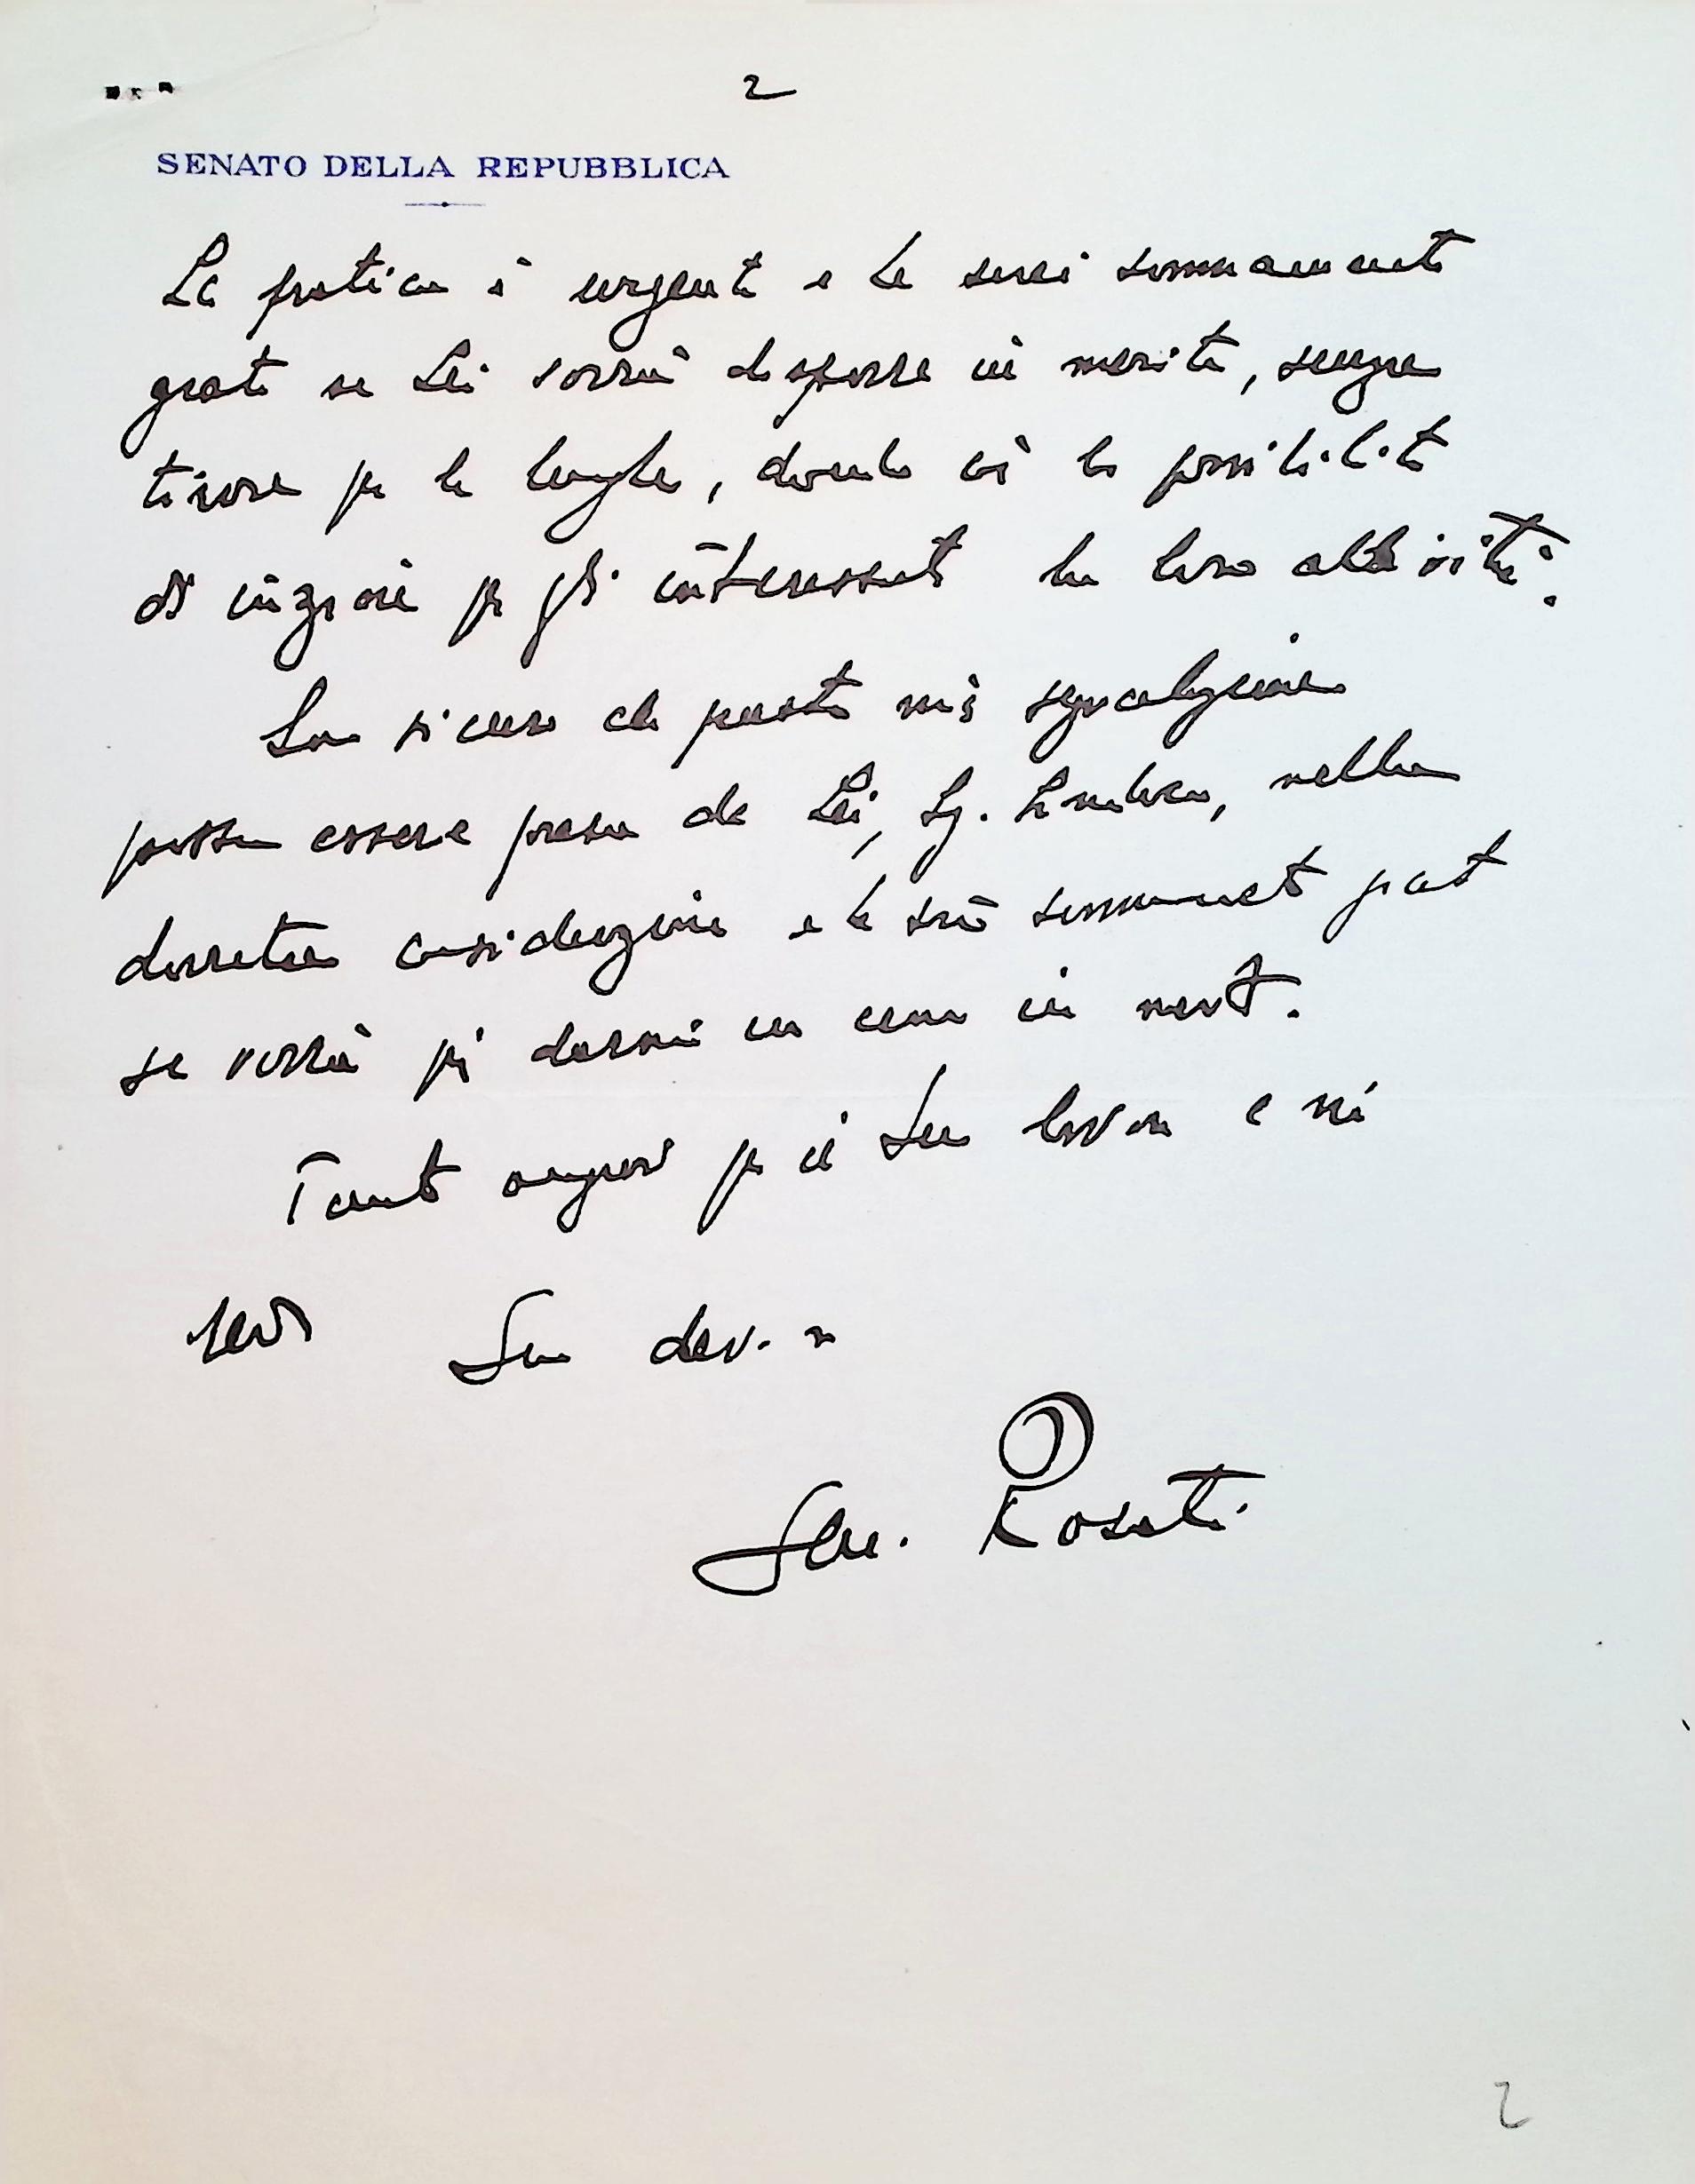 2
SENATO DELLA REPUBBLICA
La pratica è urgente e Le sarei sommamente
grato se Lei vorrà disporre in merito, senza
tirare per le lunghe, dando così la possibilità
di iniziare per gli interessati la loro attività.
Son sicuro che questa mia segnalazione
possa essere presa da Lei, Sig. Sindaco, nella
dovuta considerazione e Le sarò sommamente grato
se vorrà poi darmi un cenno in merito.
Tanti auguri per il Suo lavoro e mi
Suo dev.mo
Sen. Rosati
2